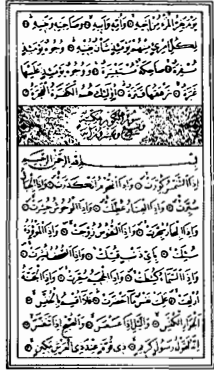 يَوْمَ يَفِرُّ الْمَرْءُ مِنْ أَخِيهِ وَأُمِّهِ وَأَبِيهِ وَصَاحِبَتِهِ وَبَنِيهِ
لِكُلِّ امْرِئٍ مِنْهُمْ يَوْمَئِذٍ شَأْنٌ يُغْنِيهِ وُجُوهٌ يَوْمَئِذٍ
مُسْفِرَةٌ ضَاحِكَةٌ مُسْتَبْشِرَةٌ وَوُجُوهٌ يَوْمَئِذٍ عَلَيْهَا
غَبَرَةٌ تَرْهَقُهَا قَتَرَةٌ أُولَئِكَ هُمُ الْكَفَرَةُ الْفَجَرَةُ
بِسْمِ اللهِ الرَّحْمَنِ الرَّحِيمِ
إِذَا الشَّمْسُ كُوِّرَتْ وَإِذَا النُّجُومُ انْكَدَرَتْ وَإِذَا الْجِبَالُ
سُيِّرَتْ وَإِذَا الْعِشَارُ عُطِّلَتْ وَإِذَا الْوُحُوشُ حُشِرَتْ
وَإِذَا الْبِحَارُ سُجِّرَتْ وَإِذَا النُّفُوسُ زُوِّجَتْ وَإِذَا الْمَوْؤُدَةُ
سُئِلَتْ بِأَيِّ ذَنْبٍ قُتِلَتْ وَإِذَا الصُّحُفُ نُشِرَتْ
وَإِذَا السَّمَاءُ كُشِطَتْ وَإِذَا الْجَحِيمُ سُعِّرَتْ وَإِذَا الْجَنَّةُ
أُزْلِفَتْ عَلِمَتْ نَفْسٌ مَا أَحْضَرَتْ فَلَا أُقْسِمُ بِالْخُنَّسِ
الْجَوَارِ الْكُنَّسِ وَاللَّيْلِ إِذَا عَسْعَسَ وَالصُّبْحِ إِذَا تَنَفَّسَ
إِنَّهُ لَقَوْلُ رَسُولٍ كَرِيمٍ ذِي قُوَّةٍ عِنْدَ ذِي الْعَرْشِ مَكِينٍ